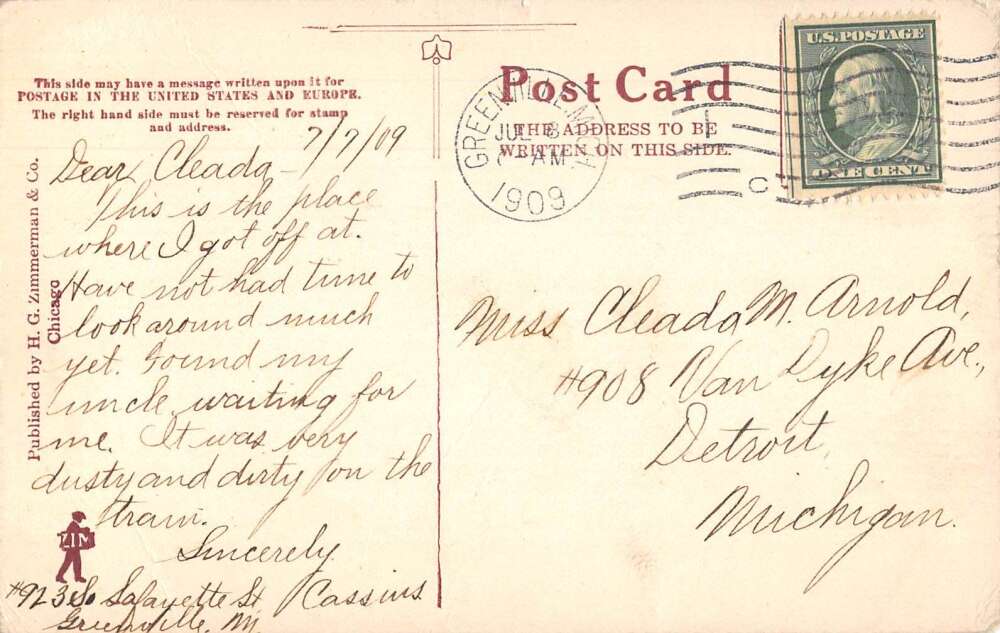 This side may have a message written upon it for
POSTAGE IN THE UNITED STATES AND EUROPE.
The right hand side must be reserved for stamp
and address.
7/7/09
Dear Cleada -
This is the place
where I got off at.
Have not had time to
look around much
yet. Found my
uncle waiting for
me. It was very
dusty and dirty on the
train.
Sincerely
Cassius
#923 So Lafayette St
Greenville, Mi
Published by H. G. Zimmerman & Co.
Chicago
ZIM
Post Card
THE ADDRESS TO BE
WRITTEN ON THIS SIDE.
GREENVILLE, MICH.
JUL 8
AM
1909
C
U.S. POSTAGE
ONE CENT
Miss Cleada M. Arnold,
#908 Van Dyke Ave.,
Detroit,
Michigan.